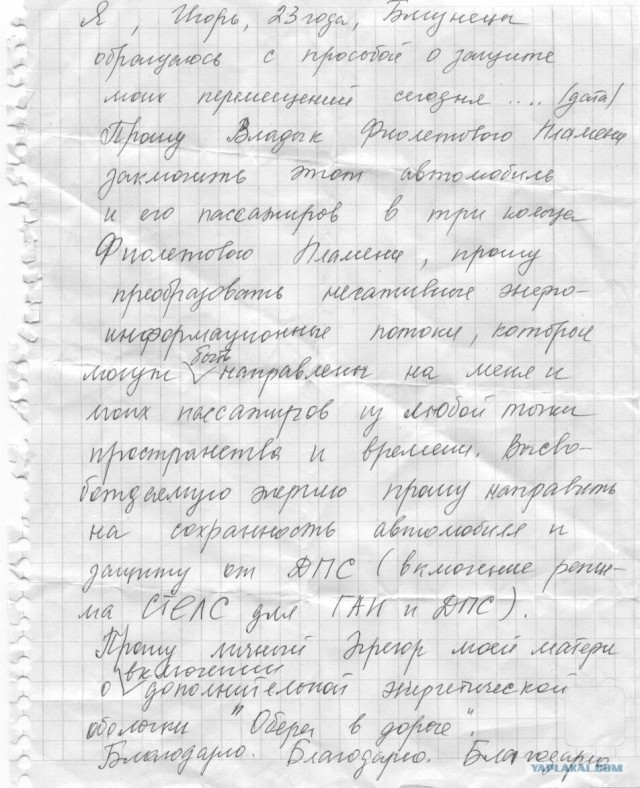 Я, Игорь, 23 года, Близнецы
обращаюсь с просьбой о защите
моих перемещений сегодня .... (дата)
Прошу Владык Фиолетового Пламени
заключить этот автомобиль
и его пассажиров в три кольца
Фиолетового Пламени, прошу
преобразовать негативные энерго-
информационные потоки, которые
могут быть направлены на меня и
моих пассажиров из любой точки
пространства и времени. Высво-
бождаемую энергию прошу направить
на сохранность автомобиля и
защиту от ДПС (включение режи-
ма СТЕЛС для ГАИ и ДПС).
Прошу личный Эгрегор моей матери
о включении дополнительной энергетической
оболочки "Оберег в дороге".
Благодарю. Благодарю. Благодарю
YAPLAKAL.COM